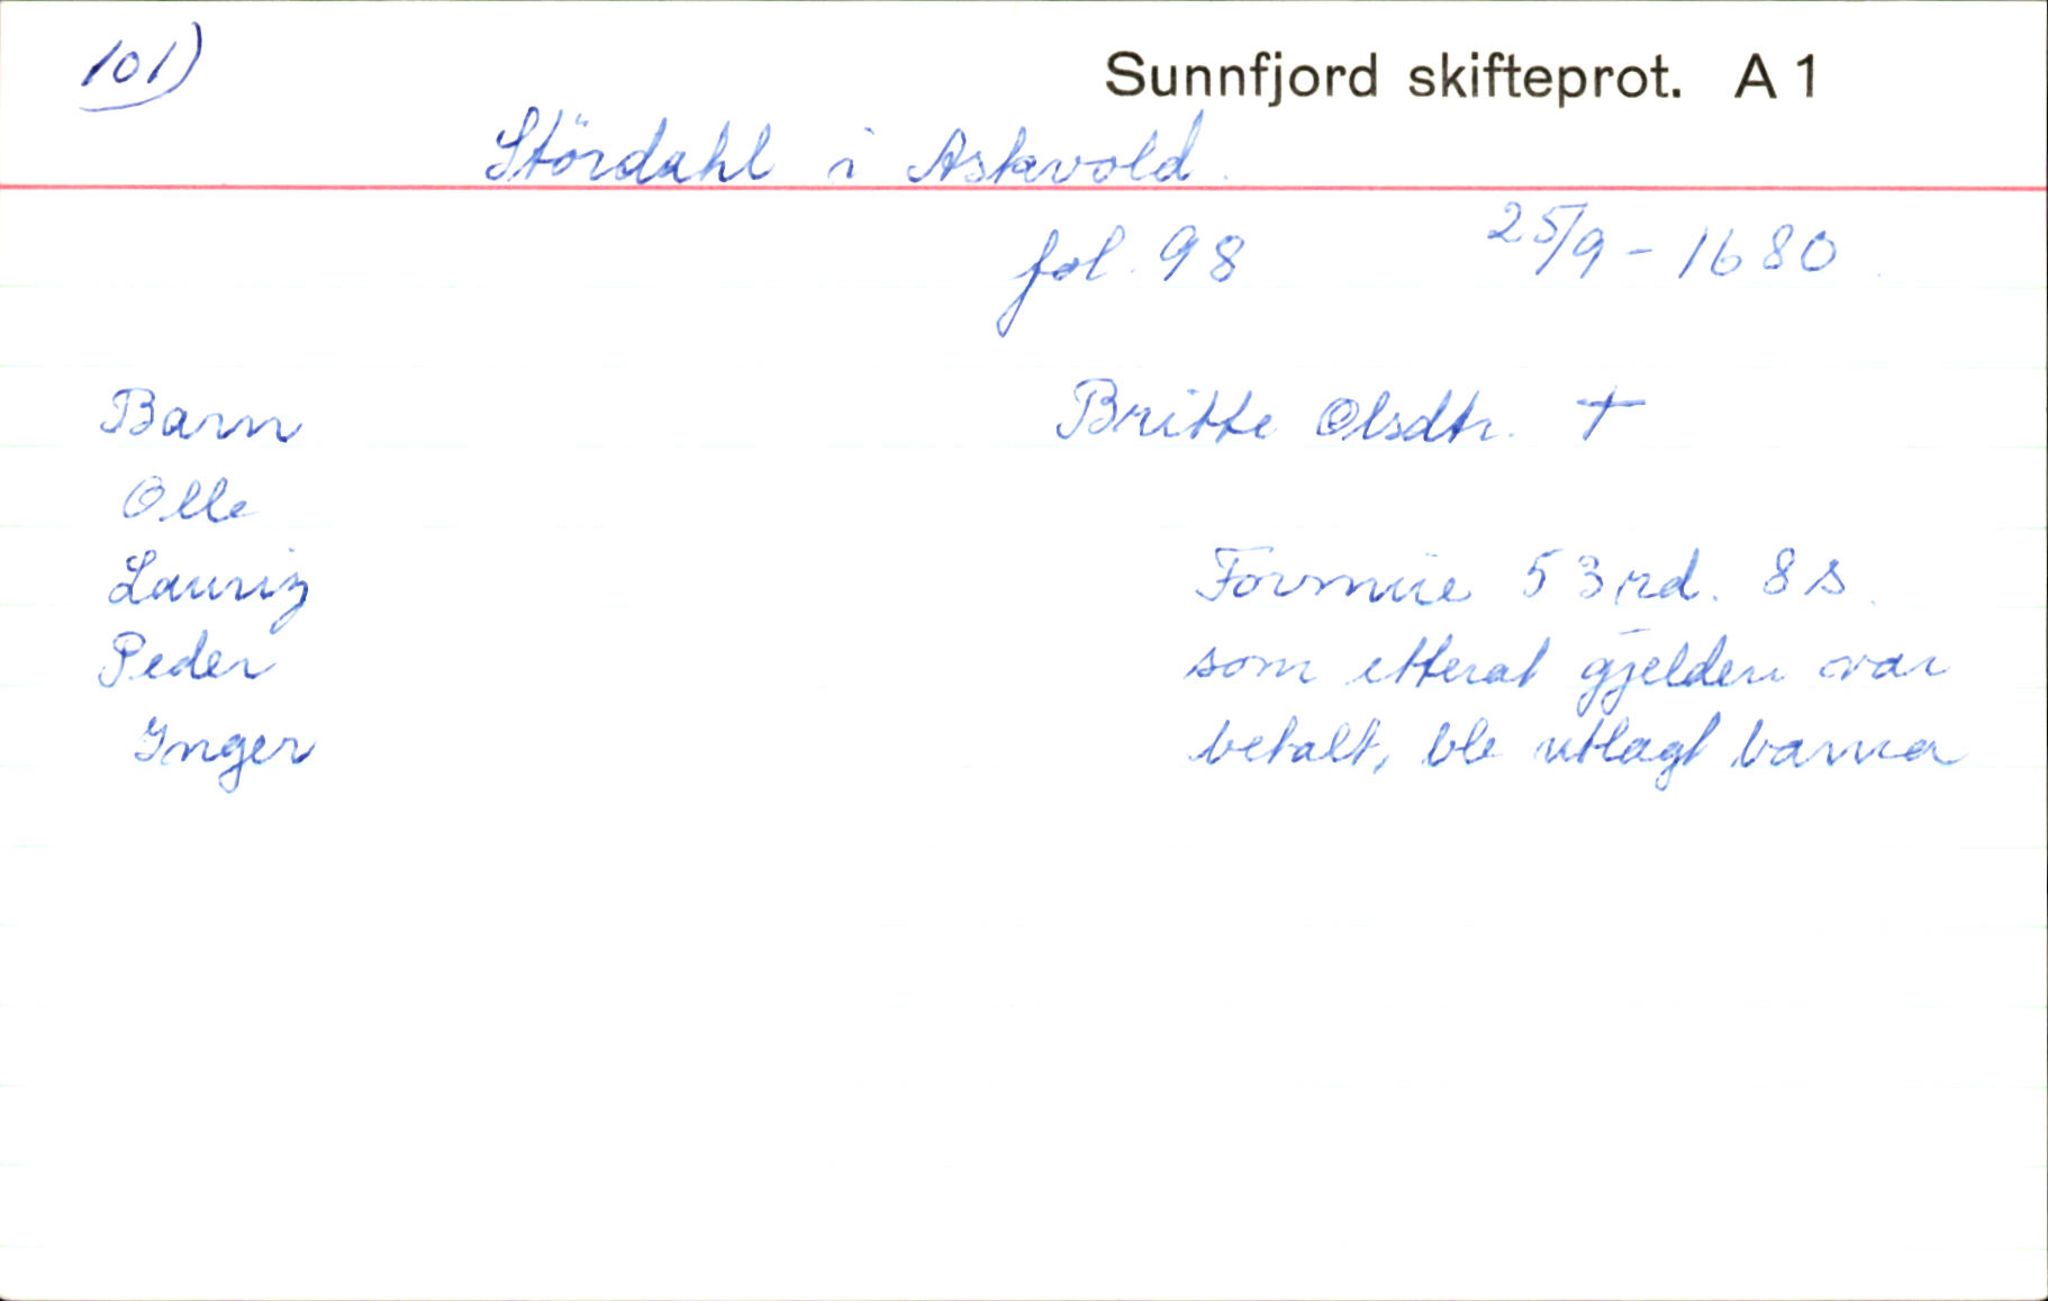 101)
Sunnfjord skifteprot. A 1
Stördahl i Askvold.
fol. 98 25/9 - 1680.
Barn Britte Olsdtr. +
Olle
Lauriz Formüe 53 rd. 8 s.
Peder som etterat gjelden var
Inger betalt, ble utlagt barna